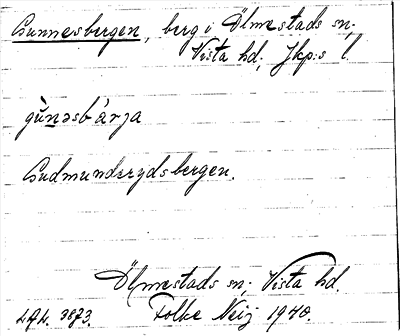 Gunnesbergen, berg i Ölmestads sn;
Vista hd; Jkp:s l.
gùnəsbárja
Gudmunderydsbergen.
Ölmestads sn; Vista hd.
Folke Neij 1940.